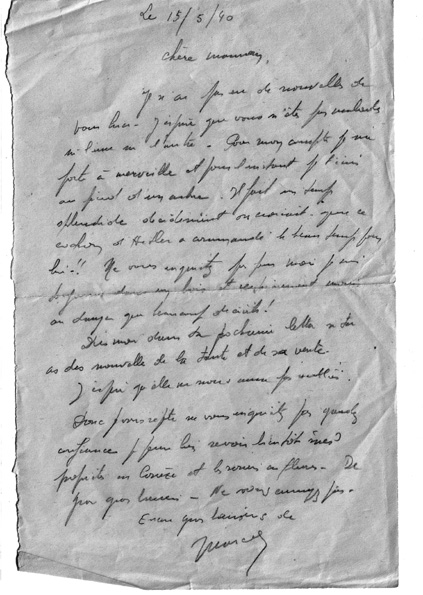 Le 15/5/40
chère maman,
Je n'ai pas eu de nouvelles de
vous hier. J'espère que vous n'êtes pas
ni l'une ni l'autre. Pour mon compte je me
porte à merveille et pour l'instant je t'écris
au pied d'un arbre. Il fait un temps
splendide décidément on croirait que ce
cochon d'Hitler a commandé le beau temps pour
lui!! Ne vous inquiétez pas pour moi je suis
toujours dans un bois et
en danger que
Dis moi dans ta prochaine lettre si tu
as des nouvelles de la tante et de sa vente.
J'espère qu'elle ne nous a pas oubliés.
Donc je vous répète ne vous inquiétez pas gardez
confiance je pense bien revoir bientôt mes
en Corrèze et les en fleurs. De
gros gros baisers - Ne vous ennuyez pas.
Encore gros baisers de
Marcel